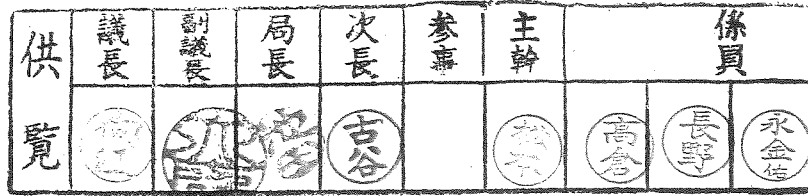 供覧 議長 副議長 局長 次長 参事 主幹 係員
古谷 松下 高倉 長野 永金佑